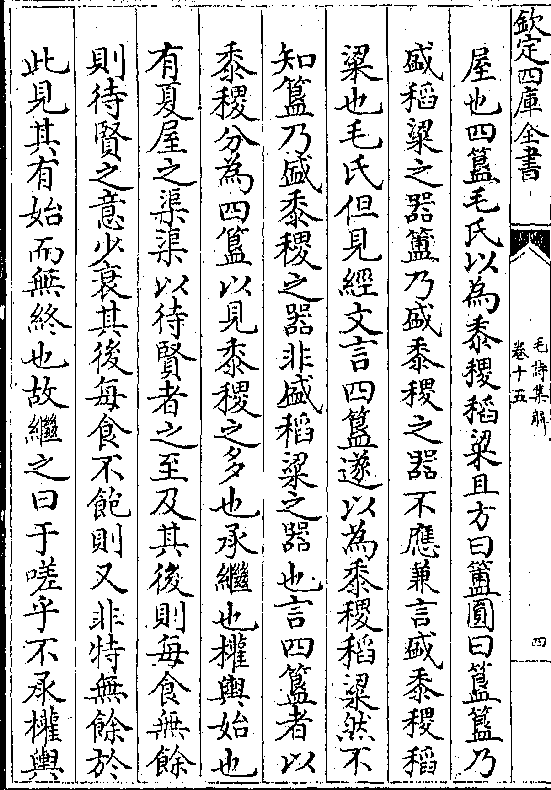 欽定四庫全書
毛詩集解
卷十五
四
屋也四簋毛氏以為黍稷稻粱且方曰簠圓曰簋簋乃
盛稻粱之器簠乃盛黍稷之器不應兼言盛黍稷稻
粱也毛氏但見經文言四簋遂以為黍稷稻粱然不
知簋乃盛黍稷之器非盛稻粱之器也言四簋者以
黍稷分為四簋以見黍稷之多也承繼也權輿始也
有夏屋之渠渠以待賢者之至及其後則每食無餘
則待賢之意少衰其後每食不飽則又非特無餘於
此見其有始而無終也故繼之曰于嗟乎不承權輿